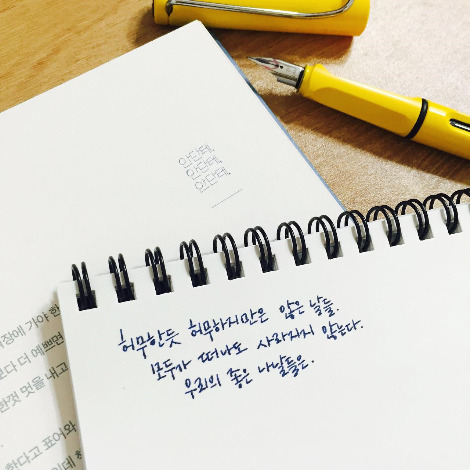 안단테,
안단테,
안단테,
허무한듯 허무하지만은 않은 날들.
모두가 떠나도 사라지지 않는다.
우리의 좋은 나날들은.
장에 가야 한
보다 더 예쁘면
한껏 멋을 내고
한다고 표어와